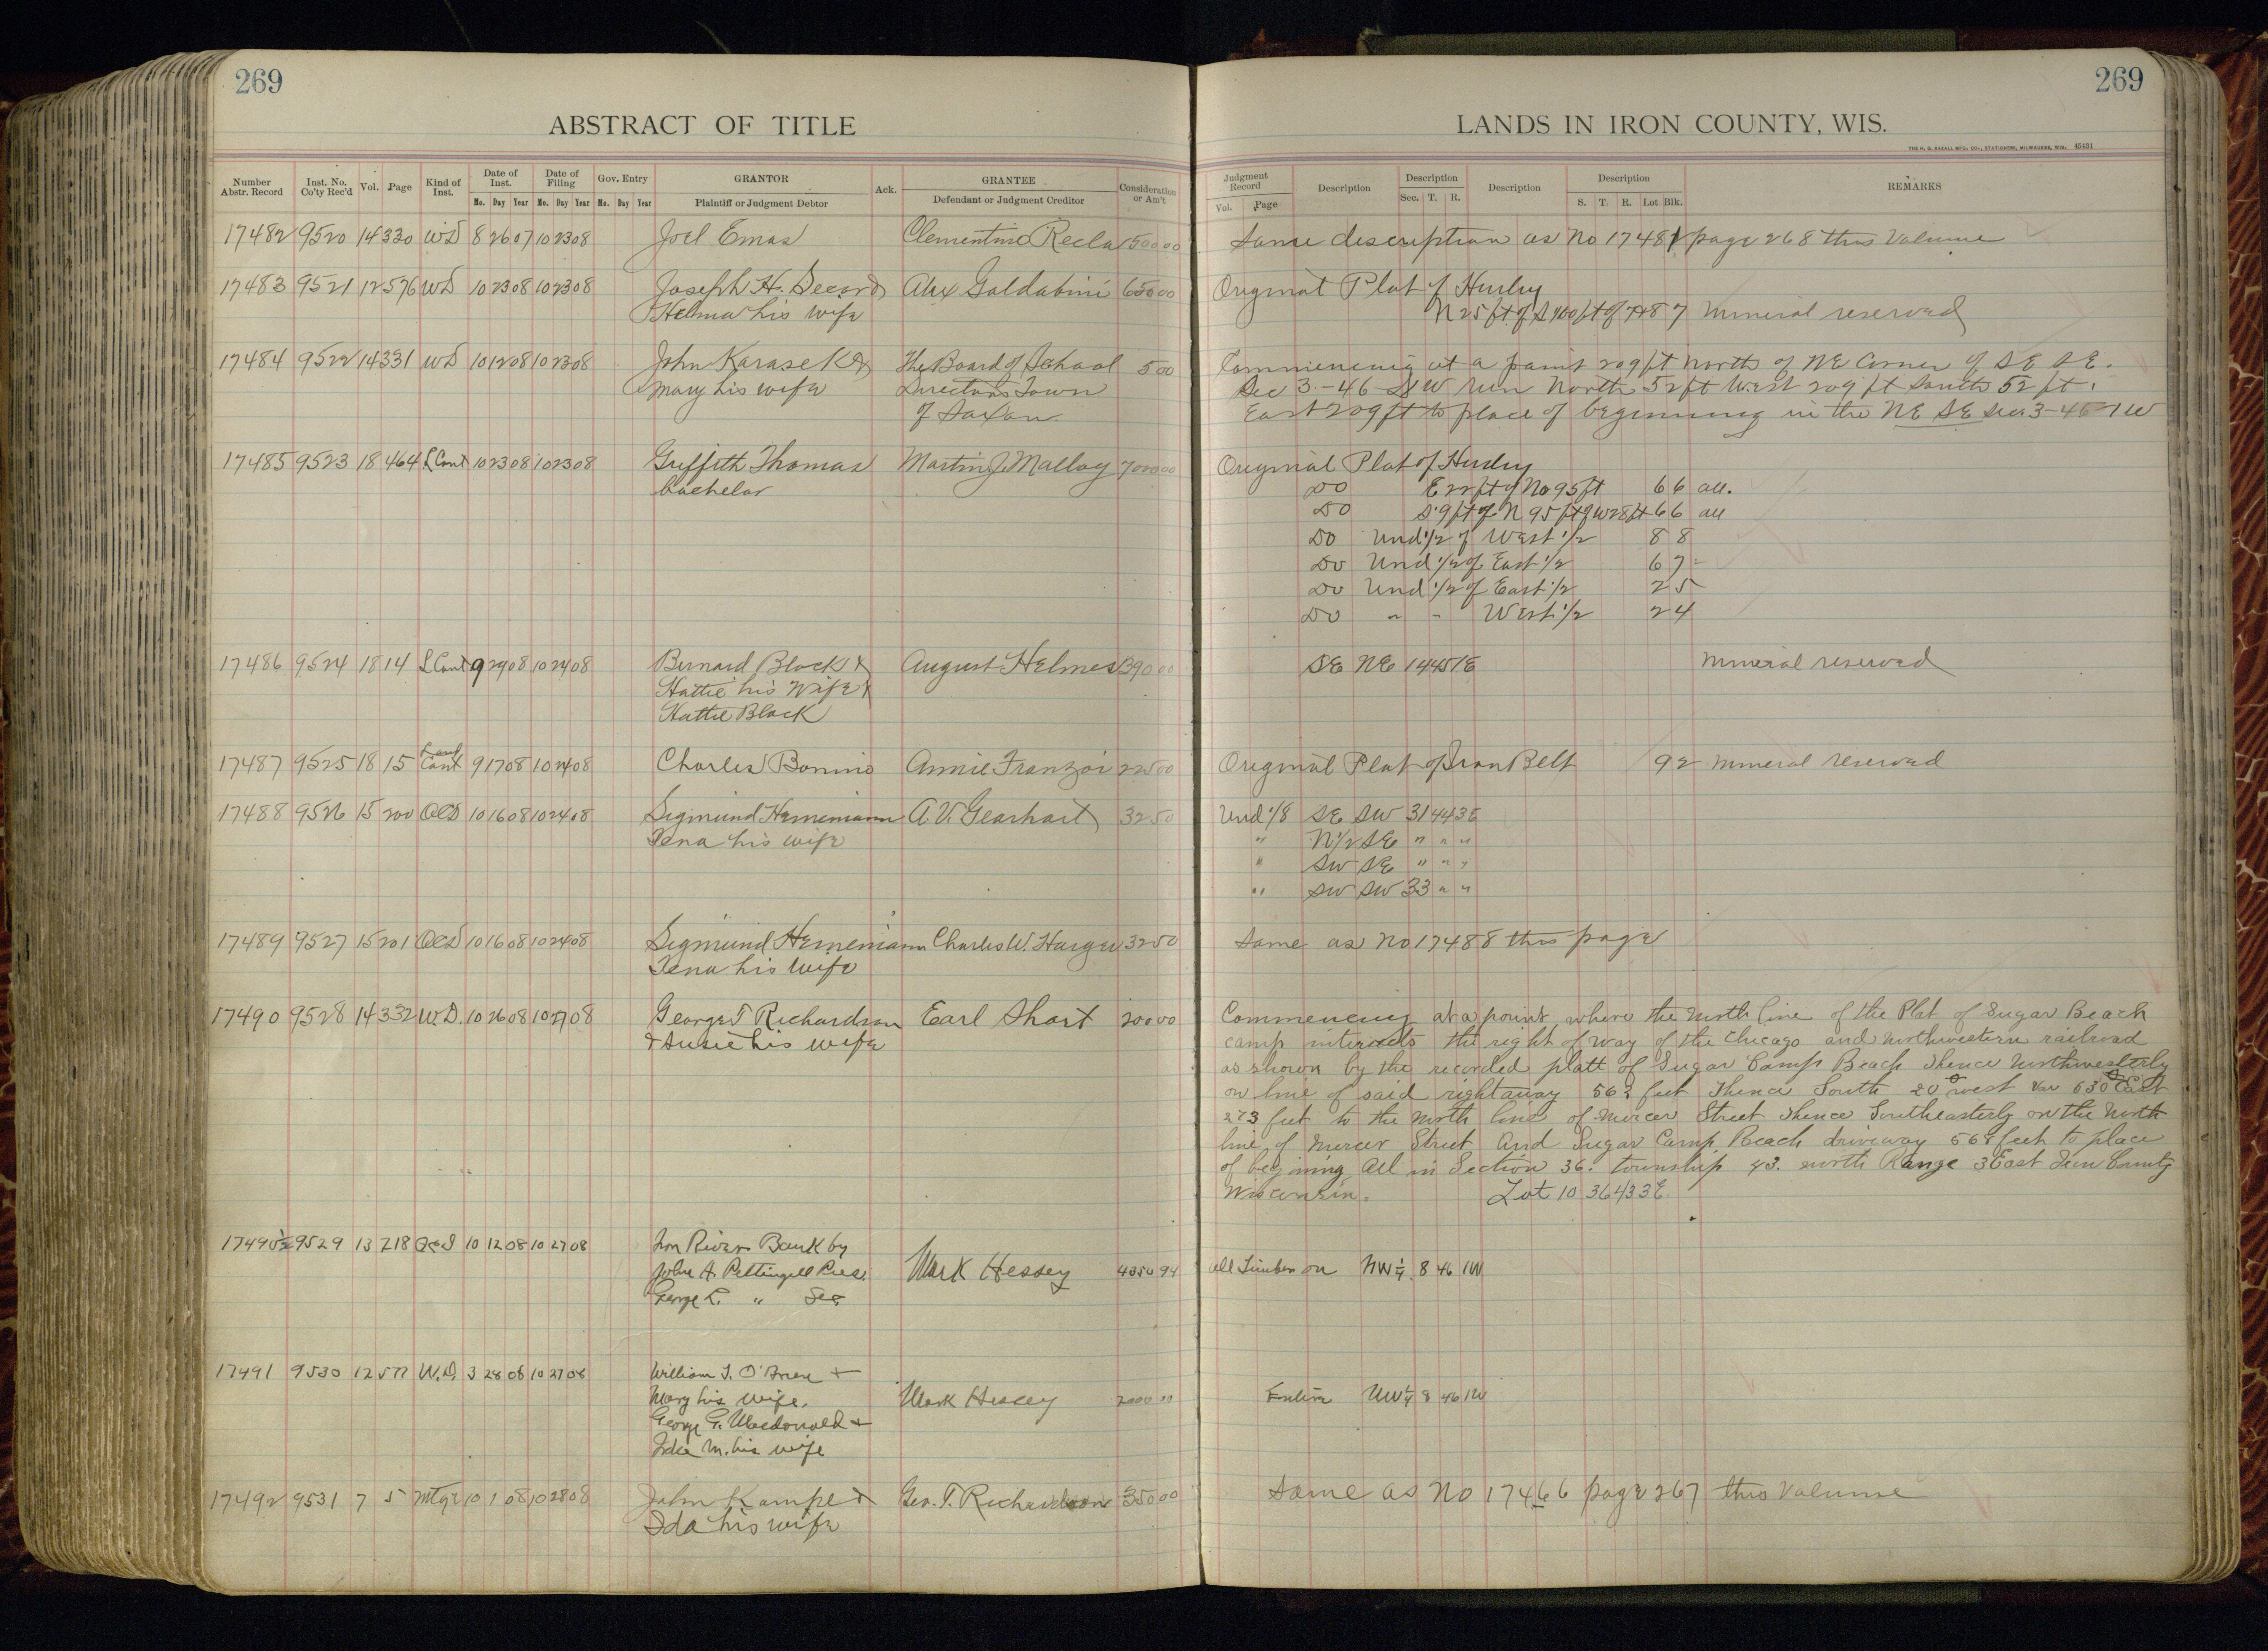 269
ABSTRACT OF TITLE
Number Abstr. Record Inst. No. Co'ty Rec'd Vol. Page Kind of Inst. Date of Inst. Date of Filing Gov. Entry GRANTOR Ack. GRANTEE Consideration or Am't
Mo. Day Year Mo. Day Year Mo. Day Year Plaintiff or Judgment Debtor Defendant or Judgment Creditor
17482 9520 14 330 WD 8 26 07 10 23 08 Joel Emas Clementine Recla 150 00
17483 9521 12 576 WD 10 23 08 10 23 08 Joseph H. Secor & Alex Galdabini 650 00
Helma his wife
17484 9522 14 331 WD 10 12 08 10 23 08 John Karasek & The Board of School 5 00
Mary his wife Directors Town
of Saxon.
17485 9523 18 464 L Cont 10 23 08 10 23 08 Griffith Thomas Martin J. Malloy 700 00
bachelor
17486 9524 18 14 L Cont 9 29 08 10 24 08 Bernard Block & August Helmes 390 00
Hattie his wife &
Hattie Block
17487 9525 18 15 Land Cont 9 17 08 10 24 08 Charles Bonino Annie Franzoi 225 00
17488 9526 15 200 QCD 10 16 08 10 24 08 Sigmund Heinemann A.V. Gearhart 32 50
Tena his wife
17489 9527 15 201 QCD 10 16 08 10 24 08 Sigmund Heinemann Charles W. Harger 32 50
Tena his wife
17490 9528 14 332 W.D. 10 26 08 10 27 08 George T Richardson Earl Short 200 00
& Susie his wife
17490½ 9529 13 218 QCD 10 12 08 10 27 08 Iron River Bank by
John A. Pettingill Pres. Mark Hessey 4350 94
George L. " Sec
17491 9530 12 577 W.D. 3 28 08 10 27 08 William J. O'Brien +
Mary his wife. Mark Hessey 2000 00
George G. Macdonald +
Ida M. his wife
17492 9531 7 5 Mtge 10 1 08 10 28 08 John Kampe & Geo. T. Richardson 350 00
Ida his wife
269
LANDS IN IRON COUNTY, WIS.
THE H. G. RAZALL MFG. CO., STATIONERS, MILWAUKEE, WIS. 45401
Judgment Record Description Description Description Description REMARKS
Vol. Page Sec. T. R. S. T. R. Lot Blk.
Same description as No 17481 page 268 this Volume
Original Plat of Hurley
N 25 ft of S 100 ft of 7 & 8 7 Mineral reserved
Commencing at a point 209 ft North of NE Corner of SE SE.
Sec 3-46-1W run North 52 ft West 209 ft South 52 ft.
East 209 ft to place of beginning in the NE SE Sec 3-46-1W
Original Plat of Hurley
Do E 22 ft of No 95 ft 6 6 all.
Do S 9 ft of N 95 ft of W 28 ft 6 6 all
Do Und 1/2 of West 1/2 8 8
Do Und 1/2 of East 1/2 6 7
Do Und 1/2 of East 1/2 2 5
Do " " West 1/2 2 4
SE NE 14 45 1E Mineral reserved
Original Plat of Iron Belt 9 2 Mineral reserved
Und 1/8 SE SW 31 44 3E
" N 1/2 SE " " "
" SW SE " " "
" SW SW 33 " "
Same as No 17488 this page
Commencing at a point where the North line of the Plat of Sugar Beach
camp intersects the right of way of the Chicago and Northwestern railroad
as shown by the recorded platt of Sugar Camp Beach thence Northwesterly
on line of said rightaway 562 feet Thence South 20° west Var 630 East
273 feet to the North line of Mercer Street thence Southeasterly on the North
line of Mercer Street and Sugar Camp Beach driveway 568 feet to place
of begining All in Section 36. township 43. north Range 3 East Iron County
Wisconsin. Lot 10 36 43 3E
All Timber on NW¼ 8 46 1W
Entire NW¼ 8 46 1W
Same as No 17466 page 267 this Volume